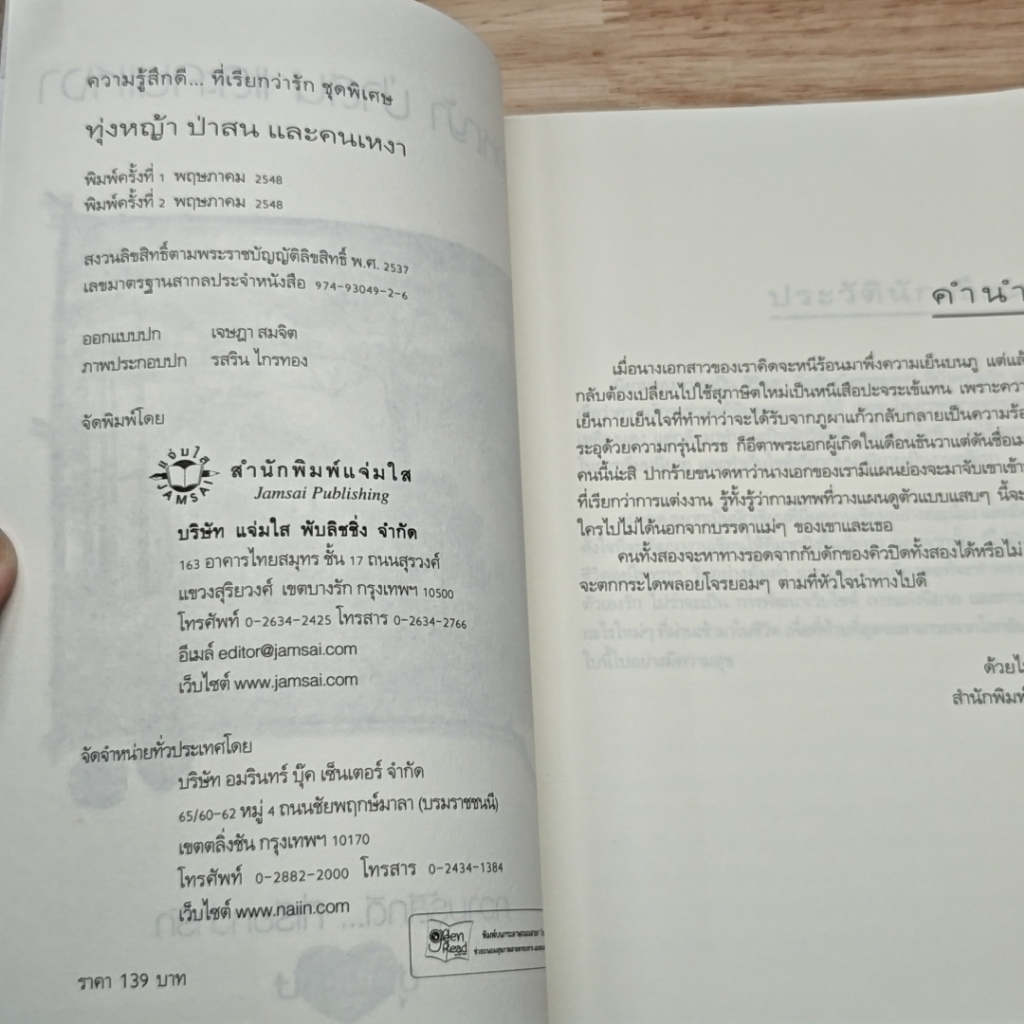 ความรู้สึกดี... ที่เรียกว่ารัก ชุดพิเศษ
ทุ่งหญ้า ป่าสน และคนเหงา
พิมพ์ครั้งที่ 1 พฤษภาคม 2548
พิมพ์ครั้งที่ 2 พฤษภาคม 2548
สงวนลิขสิทธิ์ตามพระราชบัญญัติลิขสิทธิ์ พ.ศ. 2537
เลขมาตรฐานสากลประจำหนังสือ 974-93049-2-6
ออกแบบปก เจษฎา สมจิต
ภาพประกอบปก รสริน ไกรทอง
จัดพิมพ์โดย
แจ่มใส
JAMSAI
สำนักพิมพ์แจ่มใส
Jamsai Publishing
บริษัท แจ่มใส พับลิชชิ่ง จำกัด
163 อาคารไทยสมุทร ชั้น 17 ถนนสุรวงศ์
แขวงสุริยวงศ์ เขตบางรัก กรุงเทพฯ 10500
โทรศัพท์ 0-2634-2425 โทรสาร 0-2634-2766
อีเมล์ editor@jamsai.com
เว็บไซต์ www.jamsai.com
จัดจำหน่ายทั่วประเทศโดย
บริษัท อมรินทร์ บุ๊ค เซ็นเตอร์ จำกัด
65/60-62 หมู่ 4 ถนนชัยพฤกษ์มาลา (บรมราชชนนี)
เขตตลิ่งชัน กรุงเทพฯ 10170
โทรศัพท์ 0-2882-2000 โทรสาร 0-2434-1384
เว็บไซต์ www.naiin.com
Green Read
ราคา 139 บาท
คำนำ
เมื่อนางเอกสาวของเราคิดจะหนีร้อนมาพึ่งความเย็นบนภู แต่แล้
กลับต้องเปลี่ยนไปใช้สุภาษิตใหม่เป็นหนีเสือปะจระเข้แทน เพราะควา
เย็นกายเย็นใจที่ทำท่าว่าจะได้รับจากภูผาแก้วกลับกลายเป็นความร้อ
ระอุด้วยความกรุ่นโกรธ ก็อีตาพระเอกผู้เกิดในเดือนธันวาแต่ดันชื่อเม
คนนี้น่ะสิ ปากร้ายขนาดหาว่านางเอกของเรามีแผนย่องจะมาจับเขาเข้า
ที่เรียกว่าการแต่งงาน รู้ทั้งรู้ว่ากามเทพที่วางแผนดูตัวแบบแสบๆ นี้จะ
ใครไปไม่ได้นอกจากบรรดาแม่ๆ ของเขาและเธอ
คนทั้งสองจะหาทางรอดจากกับดักของคิวปิดทั้งสองได้หรือไม่
จะตกกระไดพลอยโจรยอมๆ ตามที่หัวใจนำทางไปดี
ด้วยไ
สำนักพิมพ์